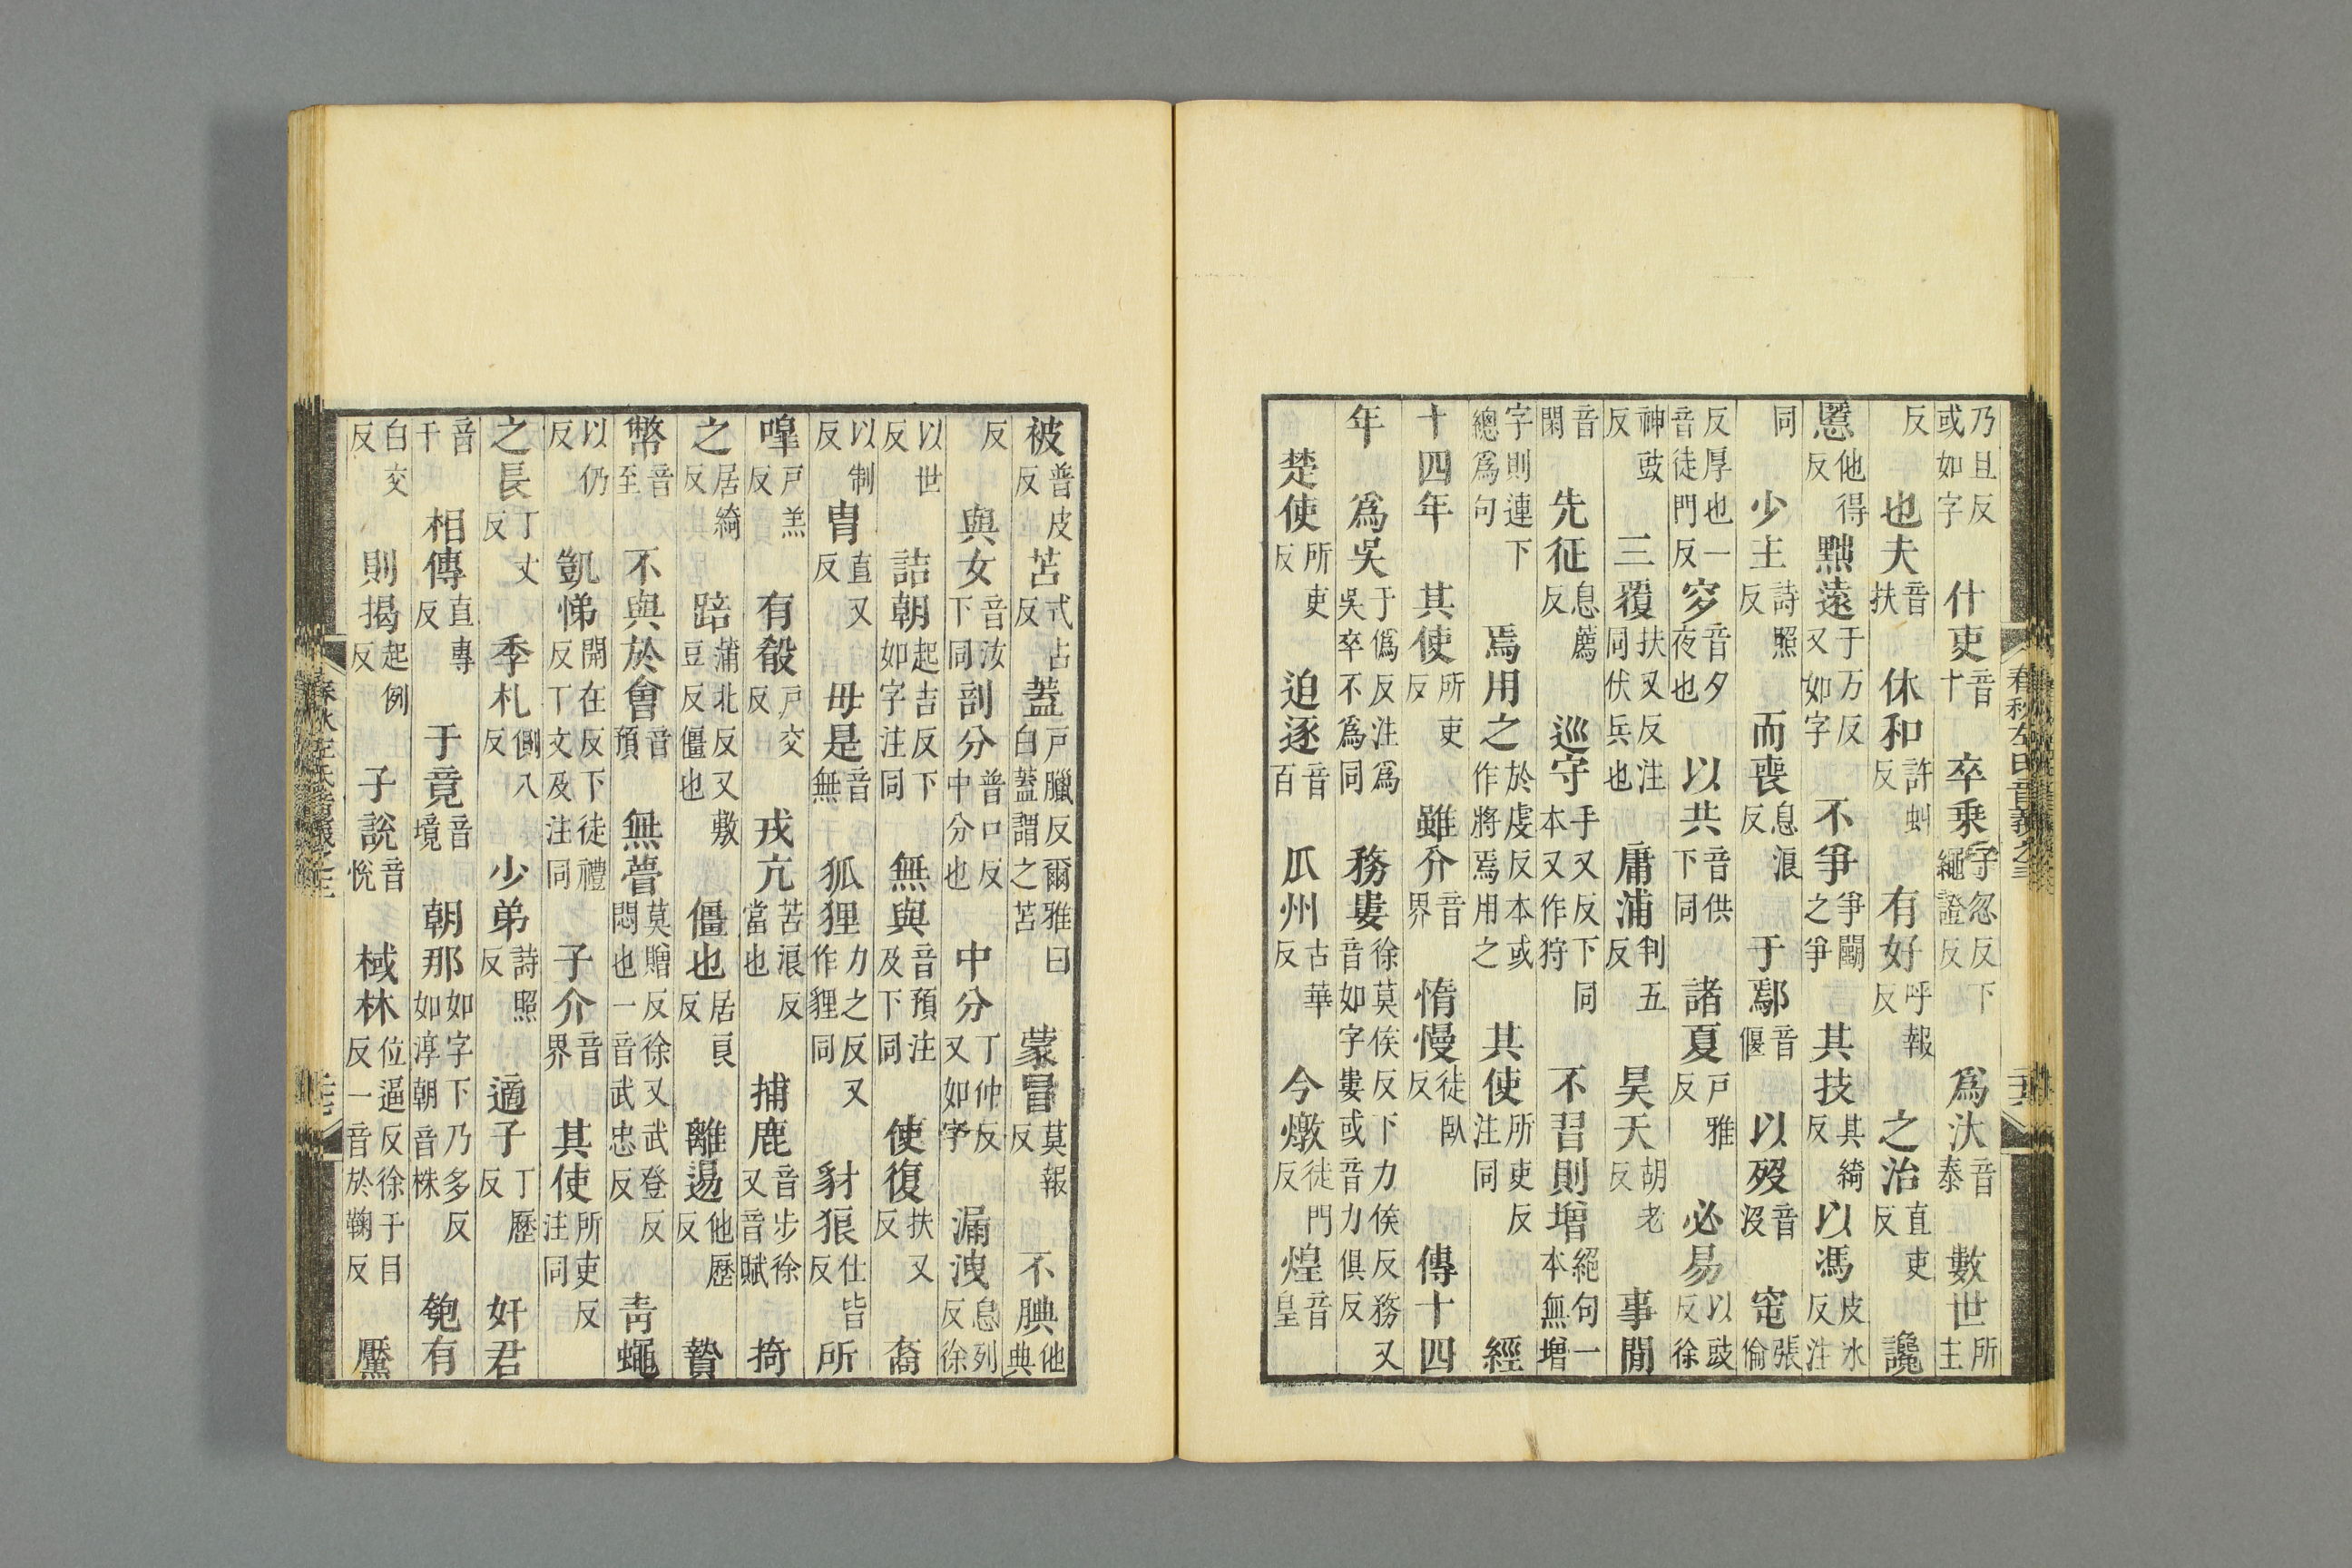 春秋左氏音義之三
乃且反或如字 什吏音十 卒乘子忽反下繩證反 為汏音泰 數世所主
反 也夫音扶 休和許虯反 有好呼報反 之治直吏反 讒
慝他得反 黙遠于万反又如字 不爭爭鬬之爭 其技其綺反 以馮皮冰反注
同 少主詩照反 而喪息浪反 于鄢音偃 以歿音沒 窀張倫
反厚也一音徒門反 穸音夕夜也 以共音供下同 諸夏戶雅反 必易以豉反徐
神豉反 三覆扶又反注同伏兵也 庸浦判五反 昊天胡老反 事閒
音閑 先征息薦反 巡守手又反下同本又作狩 不習則增絕句一本無增
字則連下總爲句 焉用之於虔反本或作將焉用之 其使所吏反注同 經
十四年 其使所吏反 雖介音界 惰慢徒臥反 傳十四
年 爲吳于僞反注爲吳卒不爲同 務婁徐莫侯反下力侯反務又音如字婁或音力俱反
楚使所吏反 迫逐音百 瓜州古華反 今燉徒門反 煌音皇
被普皮反 苫式占反 蓋戶臘反爾雅曰白蓋謂之苫 蒙冒莫報反 不腆他典
反 與女音汝下同 剖分普口反中分也 中分丁仲反又如字 漏洩息列反徐
以世反 詰朝起吉反下如字注同 無與音預注及下同 使復扶又反 裔
以制反 胄直又反 毋是音無 狐狸力之反又作貍同 豺狼仕皆反 所
嘷戶羔反 有殽戶交反 戎亢苦浪反當也 捕鹿音步徐又音賦 掎
之居綺反 踣蒲北反又敷豆反僵也 僵也居良反 離逷他歷反 贄
幣音至 不與於會音預 無瞢莫贈反徐又武登反悶也一音武忠反 青蠅
以仍反 凱悌開在反下徒禮反丁文及注同 子介音界 其使所吏反注同
之長丁丈反 季札側八反 少弟詩照反 適子丁歷反 奸君
音干 相傳直專反 于竟音境 朝那如字下乃多反如淳朝音株 匏有
白交反 則揭起例反 子說音悅 棫林位逼反徐于目反一音於鞠反 黶
春秋左氏音義之三